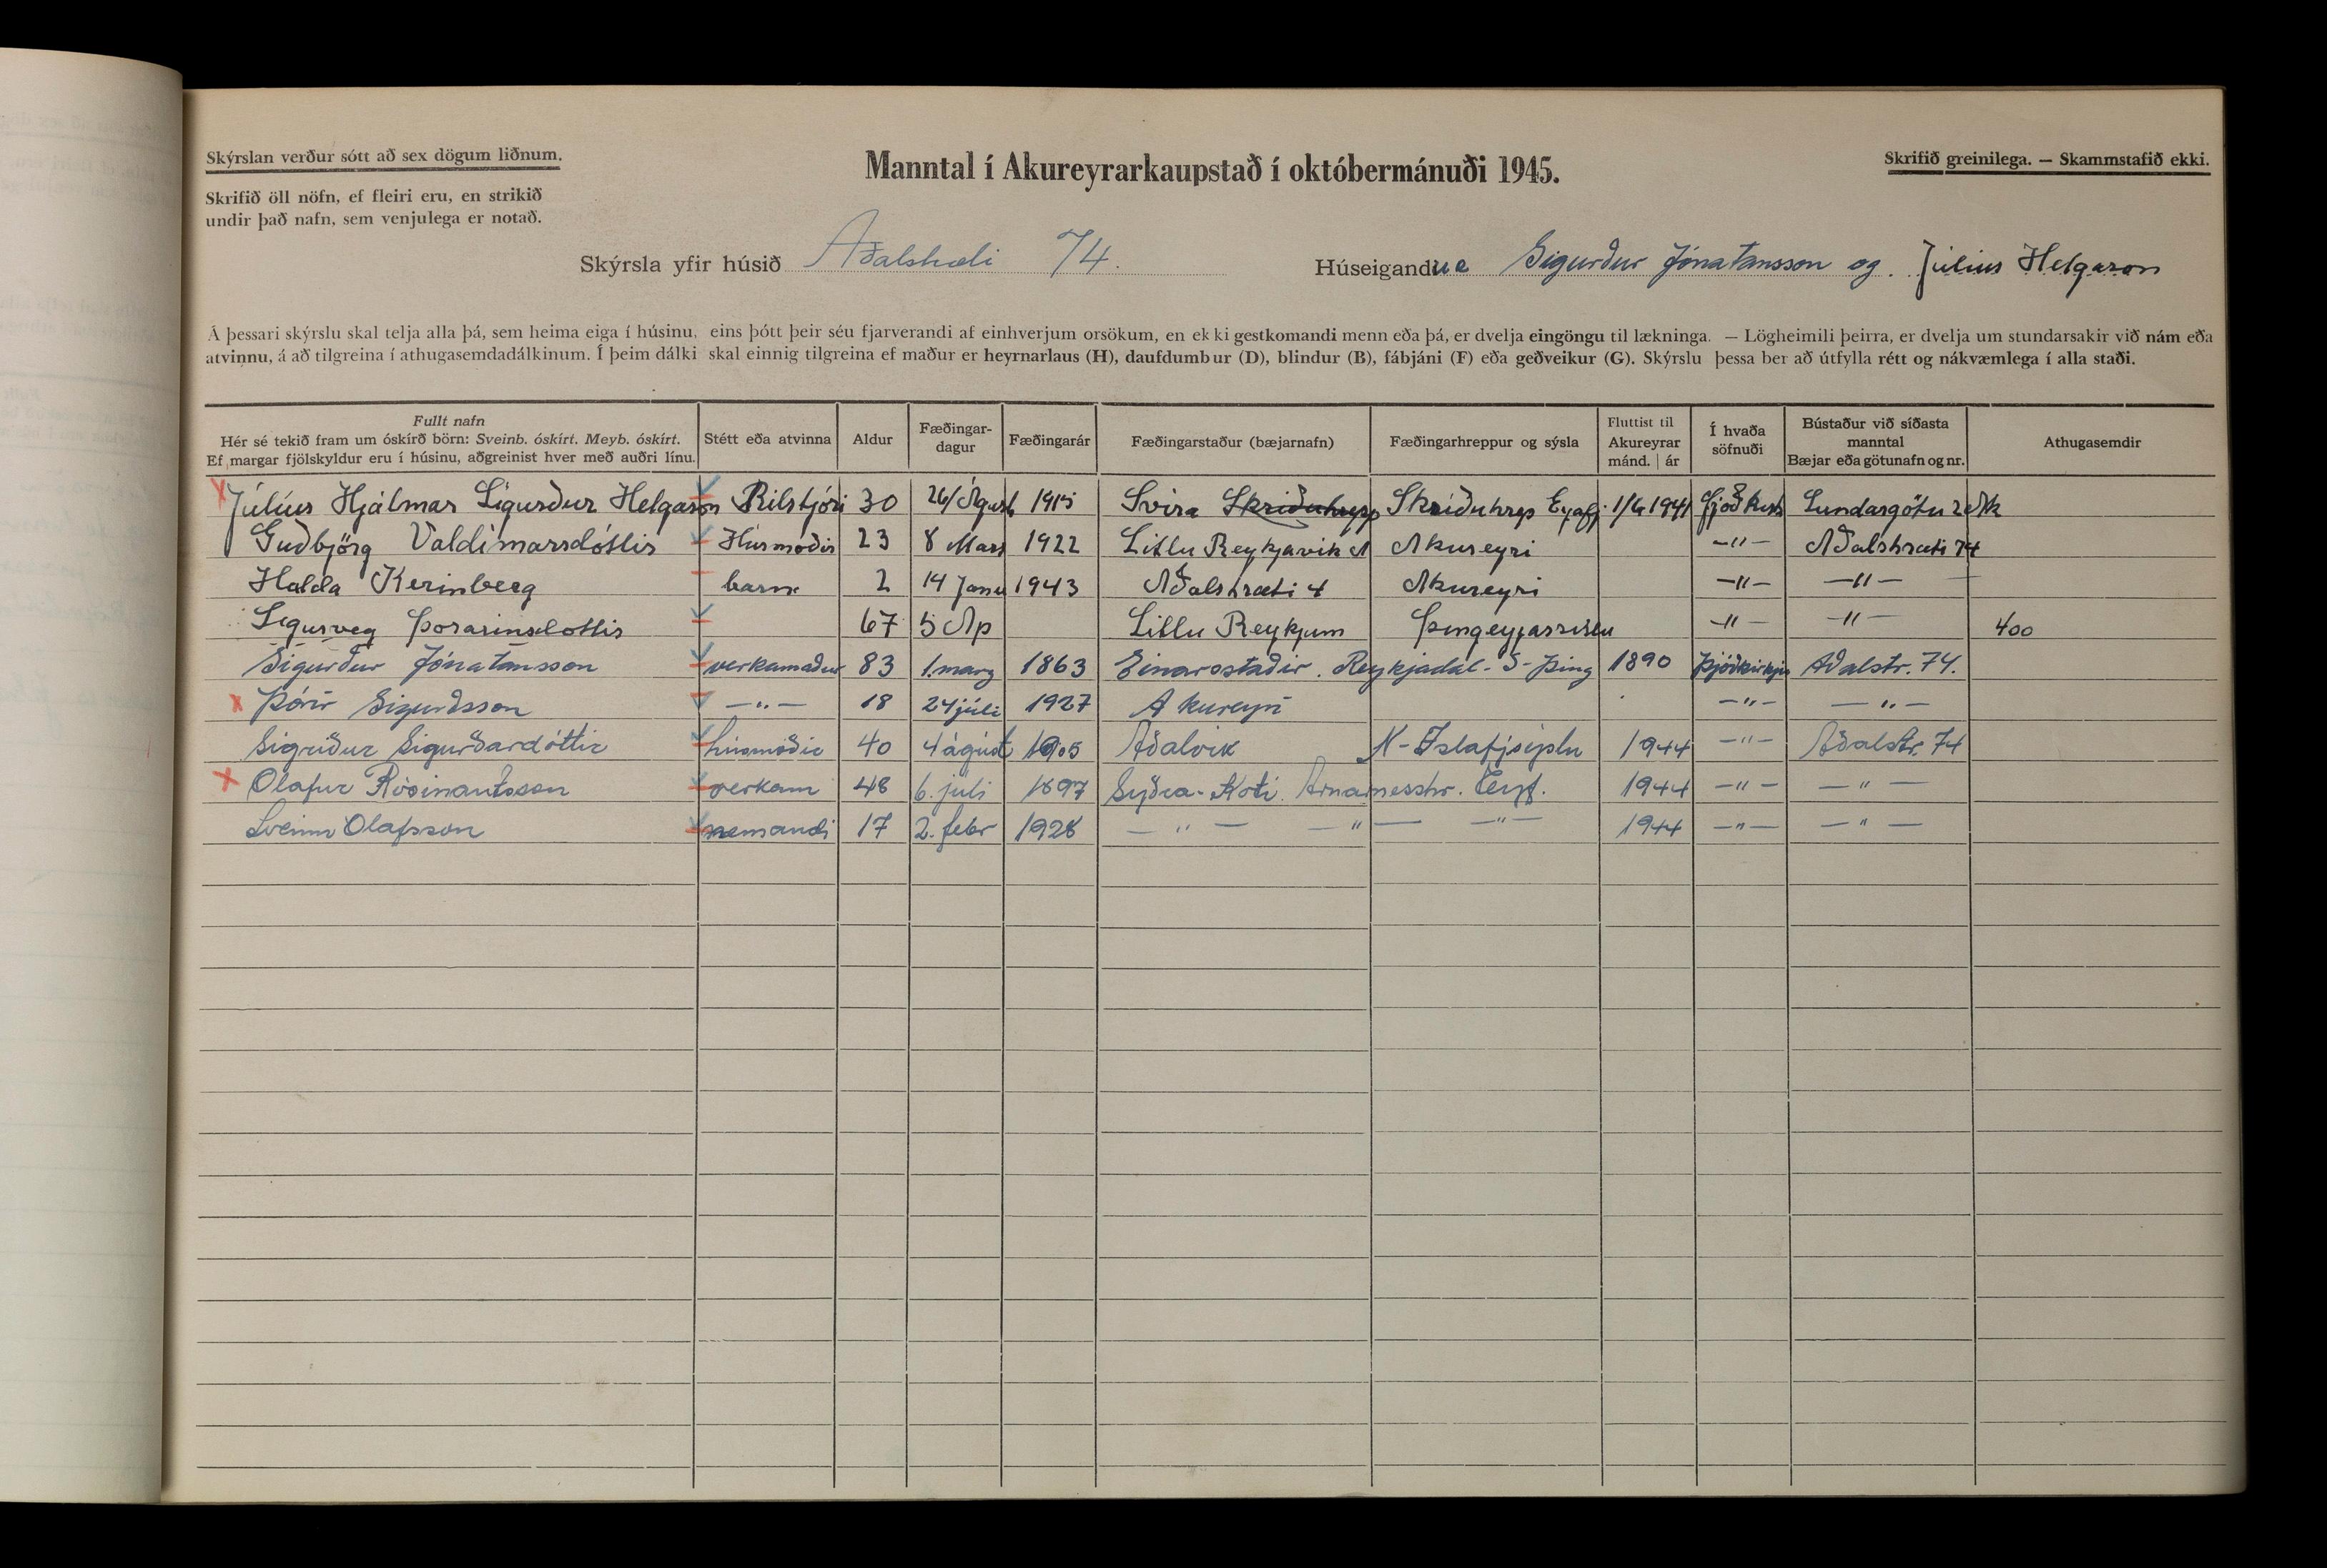 Skýrslan verður sótt að sex dögum liðnum.
Skrifið öll nöfn, ef fleiri eru, en strikið
undir það nafn, sem venjulega er notað.
Manntal í Akureyrarkaupstað í októbermánuði 1945.
Skrifið greinilega. — Skammstafið ekki.
Skýrsla yfir húsið Aðalstræti 74.
Húseigandur Sigurður Jónatansson og Júlíus Helgason
Á þessari skýrslu skal telja alla þá, sem heima eiga í húsinu, eins þótt þeir séu fjarverandi af einhverjum orsökum, en ekki gestkomandi menn eða þá, er dvelja eingöngu til lækninga. — Lögheimili þeirra, er dvelja um stundarsakir við nám eða
atvinnu, á að tilgreina í athugasemdadálkinum. Í þeim dálki skal einnig tilgreina ef maður er heyrnarlaus (H), daufdumbur (D), blindur (B), fábjáni (F) eða geðveikur (G). Skýrslu þessa ber að útfylla rétt og nákvæmlega í alla staði.
Fullt nafn
Hér sé tekið fram um óskírð börn: Sveinb. óskírt. Meyb. óskírt.
Ef margar fjölskyldur eru í húsinu, aðgreinist hver með auðri línu.
Stétt eða atvinna
Aldur
Fæðingar-
dagur
Fæðingarár
Fæðingarstaður (bæjarnafn)
Fæðingarhreppur og sýsla
Fluttist til
Akureyrar
mánd. | ár
Í hvaða
söfnuði
Bústaður við síðasta
manntal
Bæjar eða götunafn og nr.
Athugasemdir
Júlíus Hjálmar Sigurður Helgason Bilstjóri 30 26/Águst 1915 Svira Skriðuhrepp Skriðuhrep Eyafj. 1/6 1941 Þjóðkirk Lundargötu
Guðbjörg Valdimarsdóttir Húsmóðir 23 8 Mars 1922 Litlu Reykjavik A Akureyri —"— Aðalstræti 74
Halda Kerinberg barn 2 14 Janu 1943 Aðalstræti 4 Akureyri —"— —"—
Sigurveg Þorarinsdottir 67 5 Ap Litlu Reykjum Þingeyjarsislu —"— —"— 400
Sigurður Jónatansson verkamaður 83 1. marz 1863 Einarsstaðir. Reykjadal - S-Þing 1890 Þjóðkirkju Aðalstr. 74.
Þórir Sigurðsson —"— 18 24 júli 1927 Akureyri —"— —"—
Sigriður Sigurðardóttir húsmóðir 40 4 ágúst 1905 Aðalvík N-Ísafjsýslu 1944 —"— Aðalstr. 74
Olafur Rósinantsson verkam 48 6. júli 1897 Syðra-Koti. Arnarneshr. Eyf. 1944 —"— —"—
Sveinn Olafsson nemandi 17 2. febr 1928 —"— —"— —"— 1944 —"— —"—